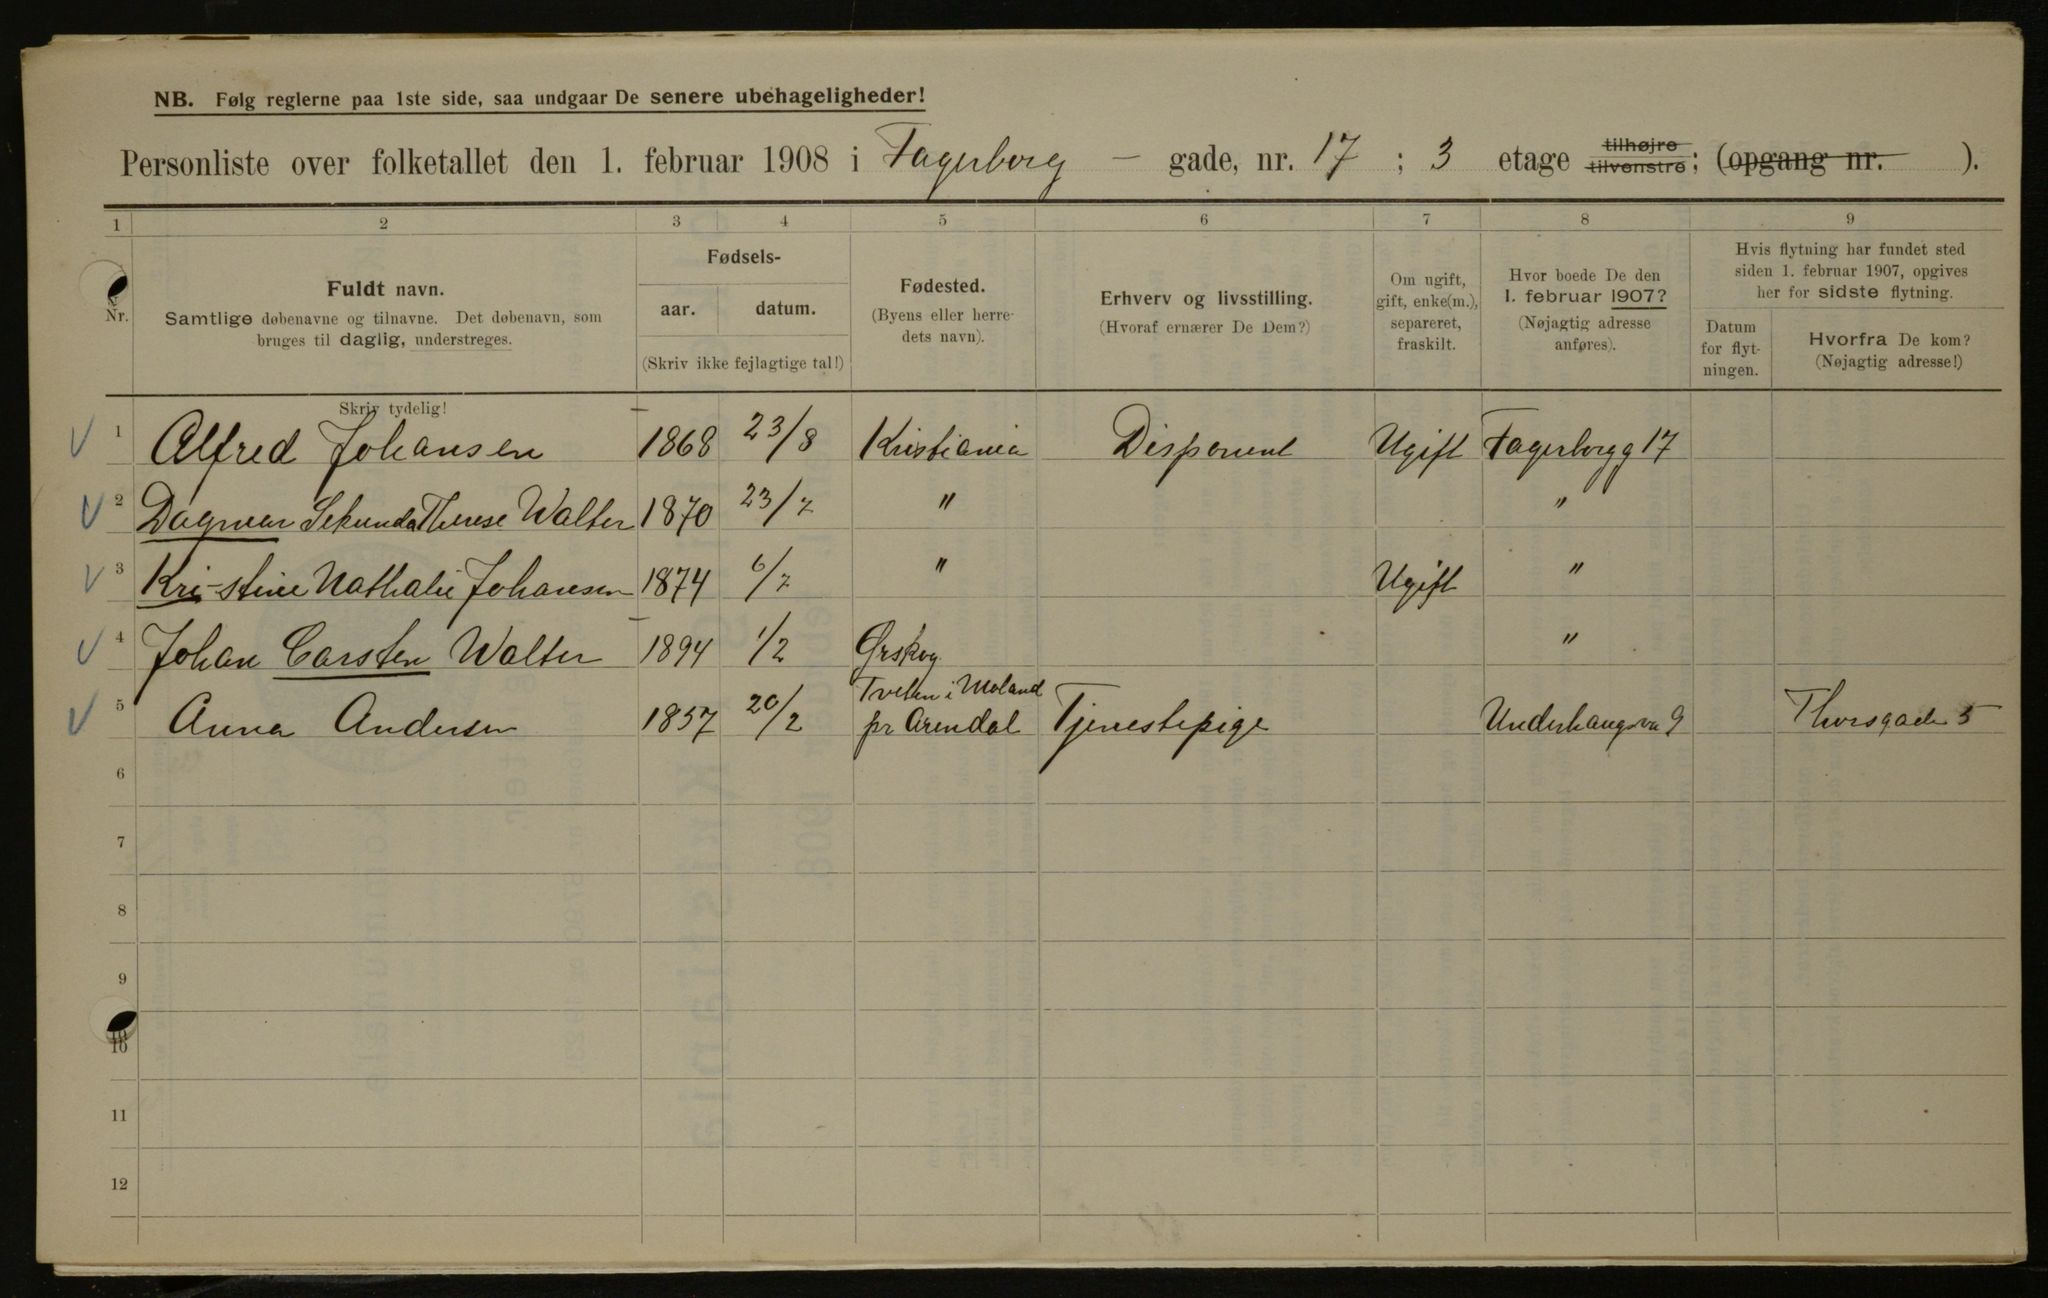 NB. Følg reglerne paa 1ste side, saa undgaar De senere ubehageligheder!
Personliste over folketallet den 1. februar 1908 i Fagerborg - gade, nr. 17 ; 3 etage tilhøjre tilvenstre; (opgang nr. ).
1 2 3 4 5 6 7 8 9
Nr.
Fuldt navn.
Samtlige døbenavne og tilnavne. Det døbenavn, som
bruges til daglig, understreges.
Fødsels-
aar. datum.
(Skriv ikke fejlagtige tal!)
Fødested.
(Byens eller herre-
dets navn).
Erhverv og livsstilling.
(Hvoraf ernærer De Dem?)
Om ugift,
gift, enke(m.),
separeret,
fraskilt.
Hvor boede De den
1. februar 1907?
(Nøjagtig adresse
anføres).
Hvis flytning har fundet sted
siden 1. februar 1907, opgives
her for sidste flytning.
Datum
for flyt-
ningen.
Hvorfra De kom?
(Nøjagtig adresse!)
Skriv tydelig!
1 Alfred Johansen 1868 23/8 Kristiania Disponent Ugift Fagerborgg 17
2 Dagmar Sekunda Therese Walter 1870 23/7 " "
3 Kri-stine Nathalie Johansen 1874 6/7 " Ugift "
4 Johan Carsten Walter 1894 1/2 Ørskog "
5 Anna Andersen 1857 20/2 Tveten i Moland
pr Arendal Tjenestepige Underhaugsvn 9 Thorsgade 5
6
7
8
9
10
11
12